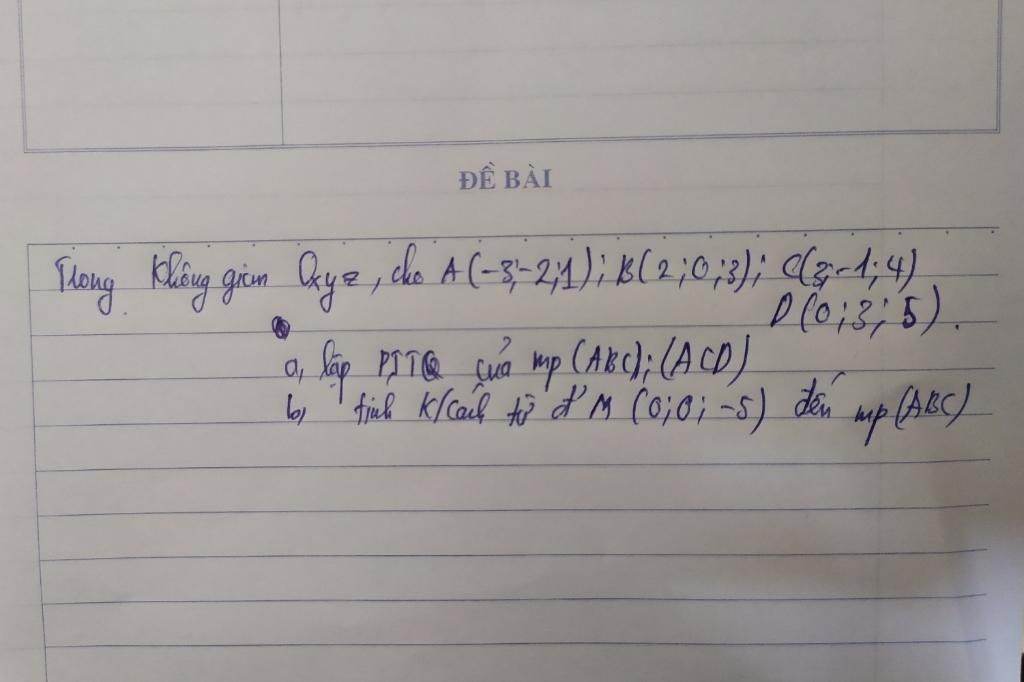 ĐỀ BÀI
Trong không gian Oxyz, cho A(-3;-2;1); B(2;0;3); C(3;-1;4)
D(0;3;5).
a, lập PTTQ của mp(ABC);(ACD)
b, tính K/Cách từ đ' M (0;0;-5) đến mp(ABC)